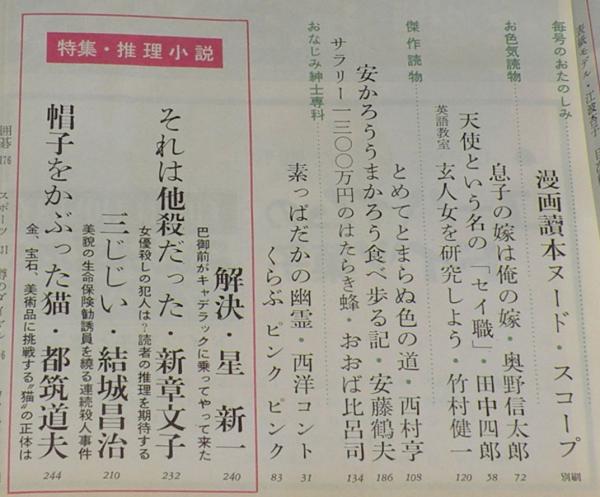 表紙モデル・江波杏子
毎号のおたのしみ
漫画讀本ヌード・スコープ 別刷
お色気読物
息子の嫁は俺の嫁・奥野信太郎 72
天使という名の「セイ職」・田中四郎 58
英語教室 玄人女を研究しよう・竹村健一 120
傑作読物
とめてとまらぬ色の道・西村亨 108
安かろううまかろう食べ歩る記・安藤鶴夫 186
サラリー一三〇〇万円のはたらき蜂・おおば比呂司 134
おなじみ紳士専科
素っぱだかの幽霊・西洋コント 31
くらぶ ピンク ピンク 83
特集・推理小説
解決・星 新一 240
巴御前がキャデラックに乗ってやって来た
それは他殺だった・新章文子 232
女優殺しの犯人は?読者の推理を期待する
三じじい・結城昌治 210
美貌の生命保険勧誘員を繞る連続殺人事件
帽子をかぶった猫・都筑道夫 244
金、宝石、美術品に挑戦する“猫”の正体は
囲碁 176
スポーツ 31